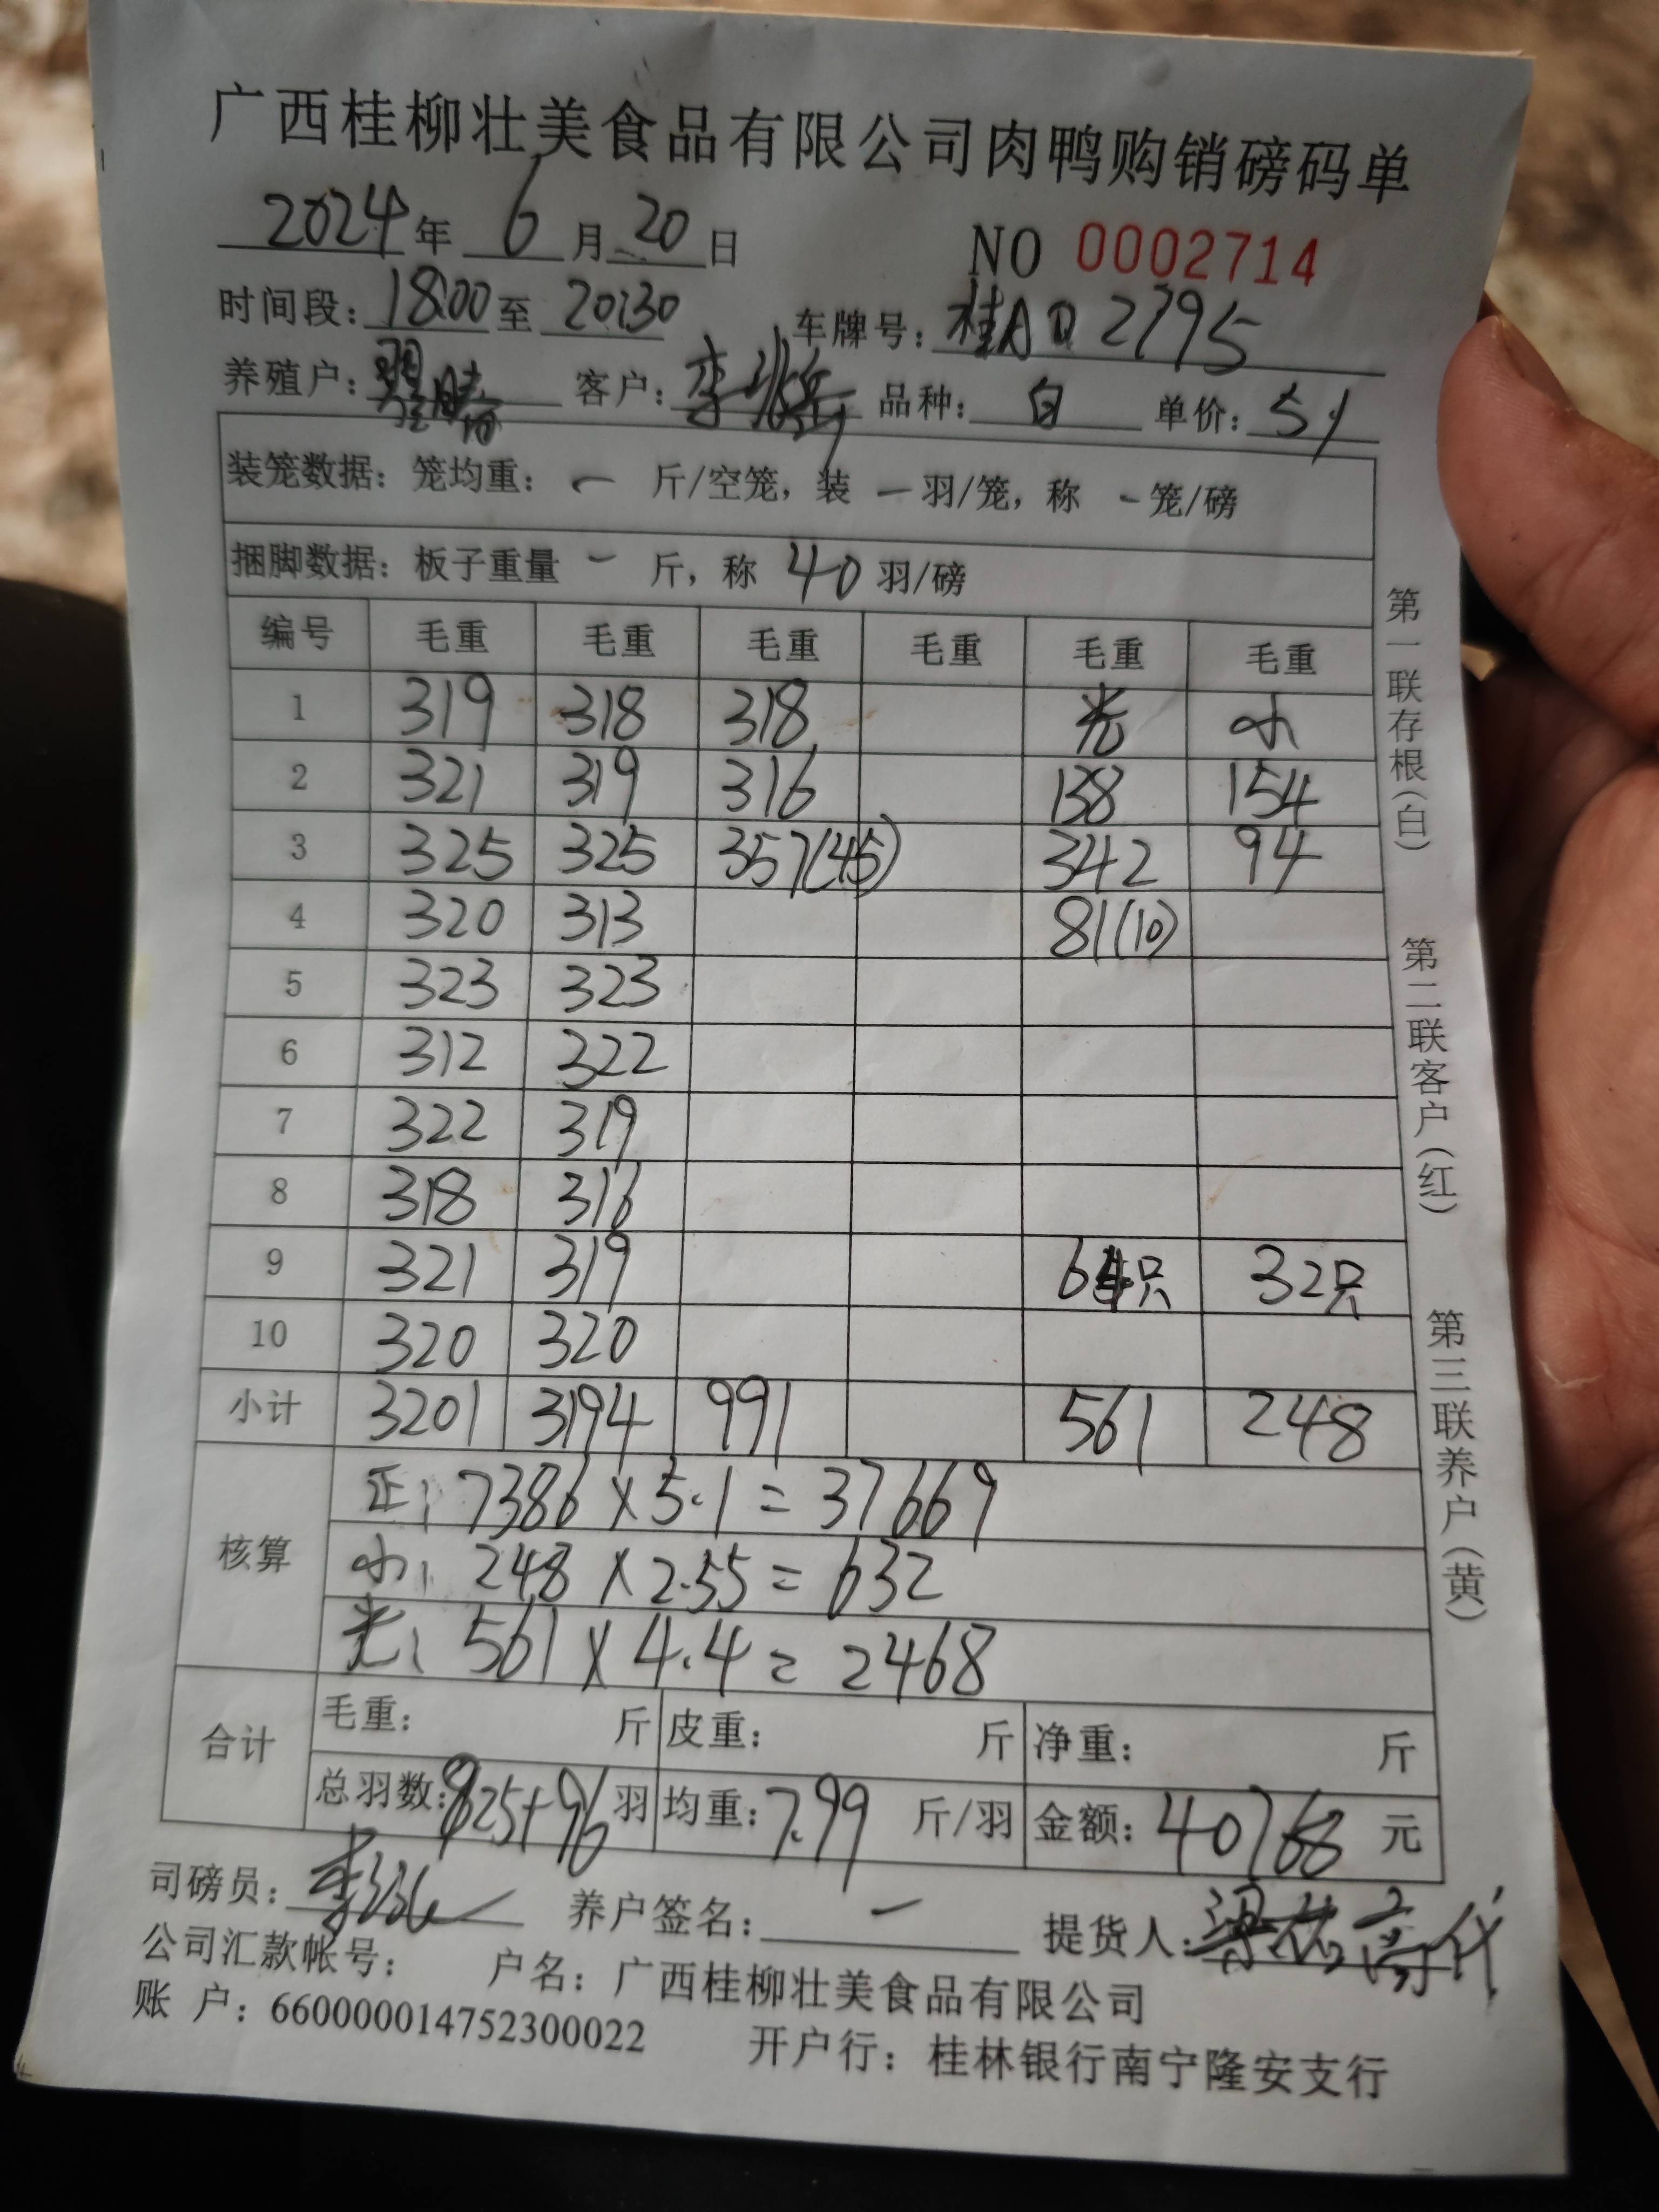 广西桂柳壮美食品有限公司肉鸭购销磅码单
2024年 6月20日 NO 0002714
时间段：18:00至 20:30 车牌号：桂AD2795
养殖户： 客户：李 品种：白 单价：5.1
装笼数据：笼均重： 一 斤/空笼，装 一 羽/笼，称 - 笼/磅
捆脚数据：板子重量 一 斤，称 40 羽/磅
编号 毛重 毛重 毛重 毛重 毛重 毛重
1 319 318 318 光 小
2 321 319 316 138 154
3 325 325 357(45) 342 94
4 320 313 81(10)
5 323 323
6 312 322
7 322 319
8 318 316
9 321 319 64只 32只
10 320 320
小计 3201 3194 991 561 248
核算
正: 7386×5.1=37669
小: 248×2.55=632
光: 561×4.4=2468
合计
毛重： 斤 皮重： 斤 净重： 斤
总羽数:925+96羽 均重:7.99 斤/羽 金额:40768 元
司磅员：李 养户签名：一 提货人：梁 代
公司汇款帐号： 户名：广西桂柳壮美食品有限公司
账 户：660000014752300022 开户行：桂林银行南宁隆安支行
第一联存根(白)
第二联客户(红)
第三联养户(黄)